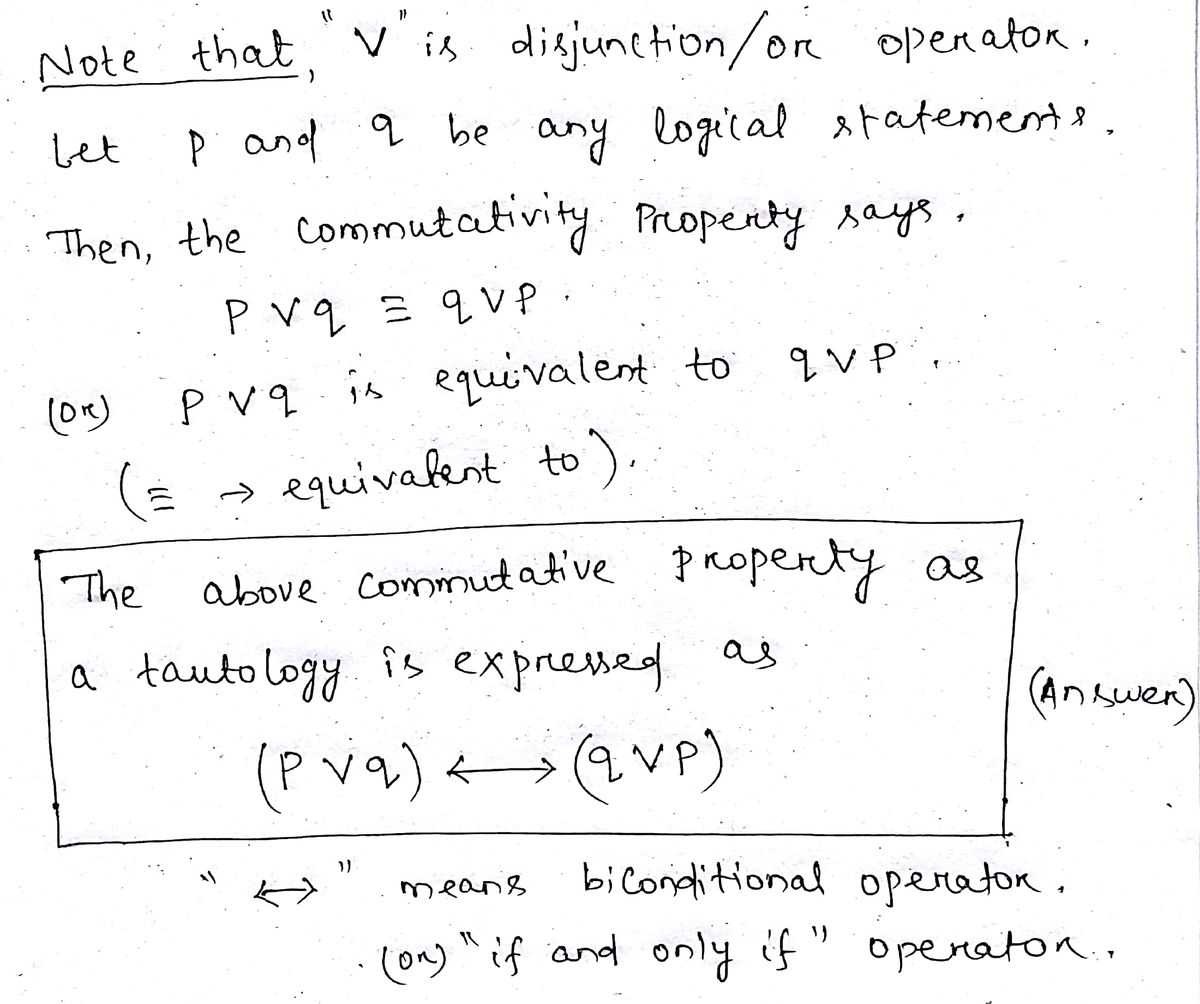 Note that, "∨" is disjunction/or operator.
Let p and q be any logical statements.
Then, the Commutativity Property says,
p ∨ q ≡ q ∨ p.
(or) p ∨ q is equivalent to q ∨ p.
(≡ → equivalent to).
The above commutative property as
a tautology is expressed as
(p ∨ q) ⟷ (q ∨ p)
(Answer)
"↔" means biconditional operator.
(or) "if and only if" operator.